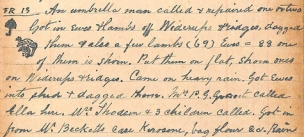 FR 13 - An umbrella man called & repaired one or two
Got in Ewes & Lambs off Widerups & ridges, dagged
them & also a few lambs (69) Ewes = 88 one
of them is shorn. Put them on flat, Shorn ones
on Widerups & ridges. Came on heavy rain. Got Ewes
into shed & dagged them. Mr P. G. called
Ella here. Mrs & 3 children called. Got in
from Mr Becketts Case Kerosene, bag flour &c. Rain